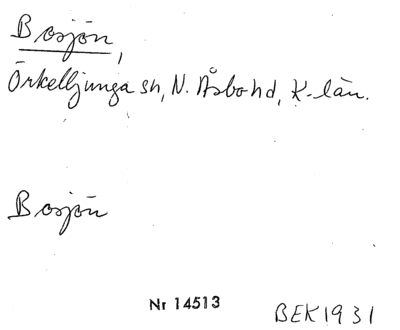 Bosjön,
Örkelljunga sn, N. Åsbo hd, K-län.
Bosjön
Nr 14513
BEK1931